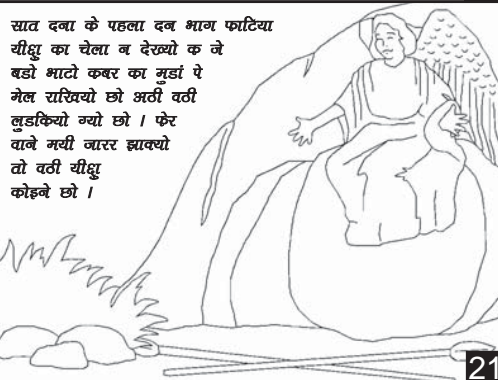 सात दना के पहला दन भाग फाटिया
यीशु का चेला न देख्यो क जे
बडो भाटो कबर का मुडां पे
मेल राखियो छो अठी वठी
लुडकियो ग्यो छो । फेर
वाने मयी जारर झाक्यो
तो वठी यीशु
कोइने छो ।
21